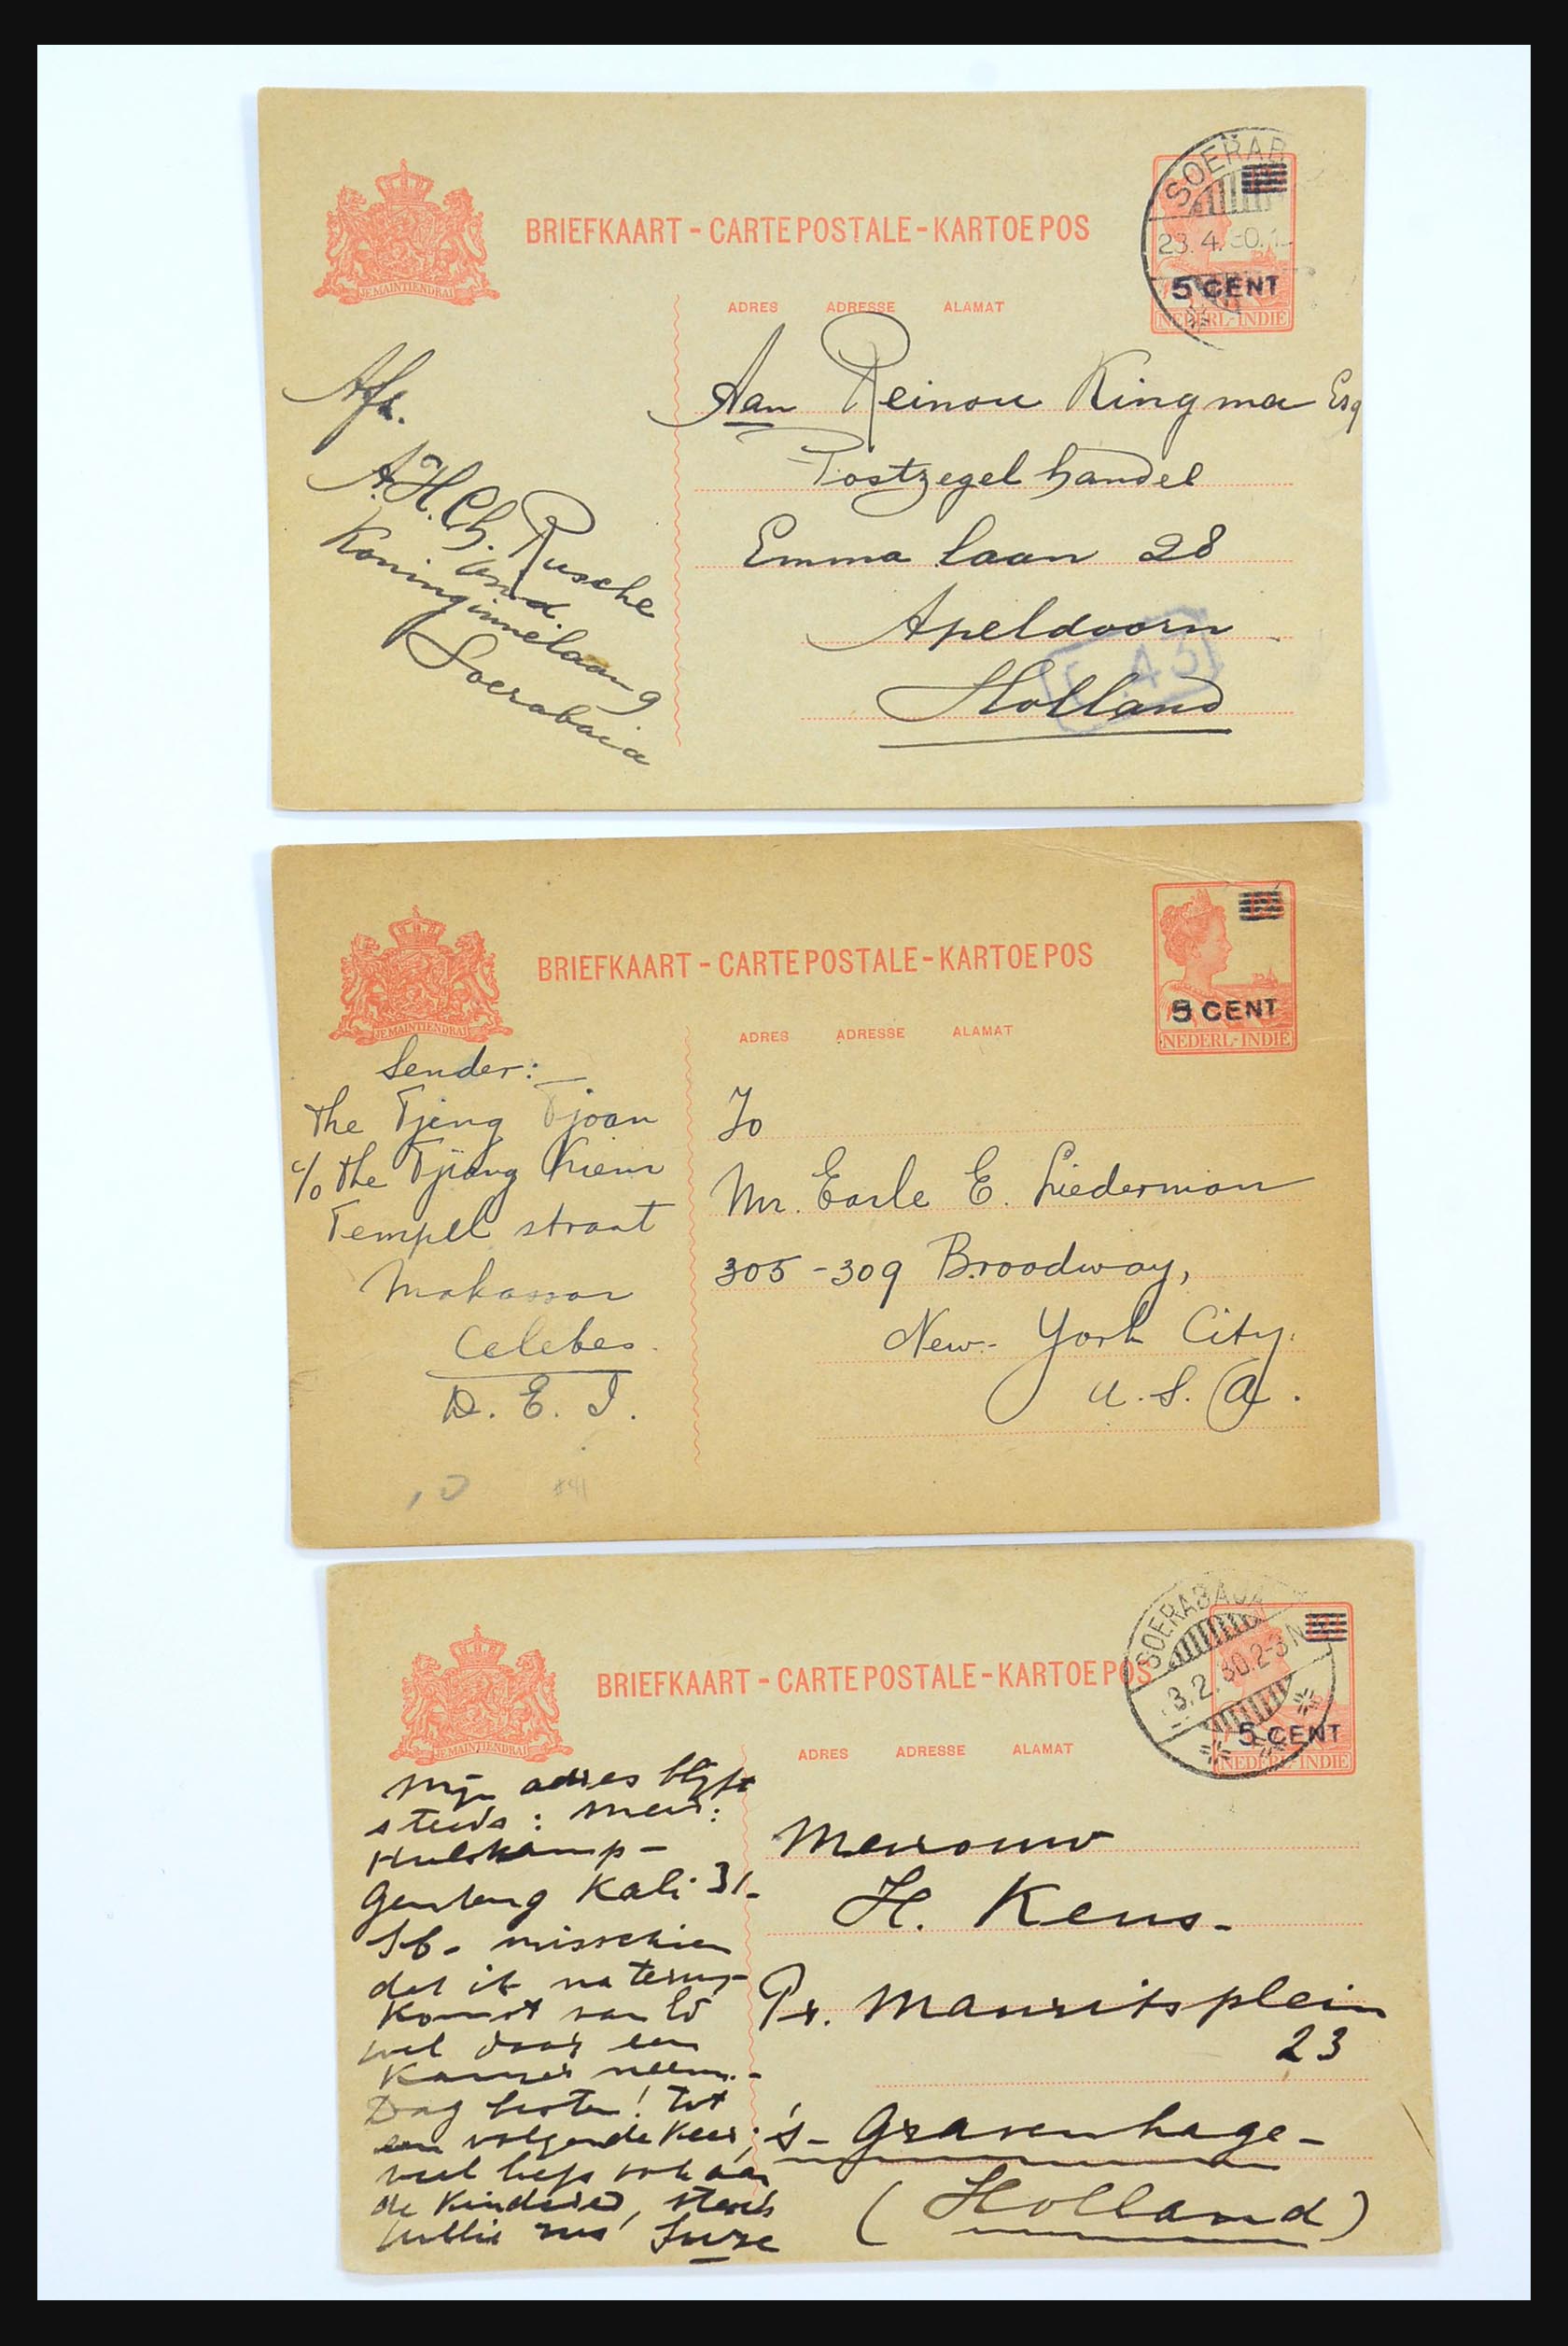 BRIEFKAART - CARTE POSTALE - KARTOE POS
JE MAINTIENDRAI
ADRES ADRESSE ALAMAT
SOERAB
23.4.30.1
5 CENT
NEDERL-INDIE
Afz.
A.H.Ch. Rusche
Koninginnelaan 9
Soerabaia
Aan Reinou Kingma Esq
Postzegelhandel
Emma laan 28
Apeldoorn
Holland
BRIEFKAART - CARTE POSTALE - KARTOE POS
JE MAINTIENDRAI
ADRES ADRESSE ALAMAT
5 CENT
NEDERL-INDIE
Sender:
The Tjeng Tjoan
c/o The Tjiang Kiem
Tempel straat
Makassar
Celebes.
D. E. I.
To
Mr. Earle E. Liederman
305-309 Broadway,
New-York City.
U.S.A.
BRIEFKAART - CARTE POSTALE - KARTOE POS
JE MAINTIENDRAI
ADRES ADRESSE ALAMAT
SOERABAJA
3.2.30.2-3N
5 CENT
NEDERL-INDIE
Mijn adres blijft
steeds: Mevr:
Hulskamp-
Genteng Kali 31-
Sb- misschien
dat ik na terug-
komst van Ed
wel daar een
kamer neem.-
Dag besten! Tot
een volgende keer;
veel liefs ook aan
de kinderen, steeds
jullie zus
Mevrouw
H. Kens-
Pr. Mauritsplein
23
's-Gravenhage-
(Holland)